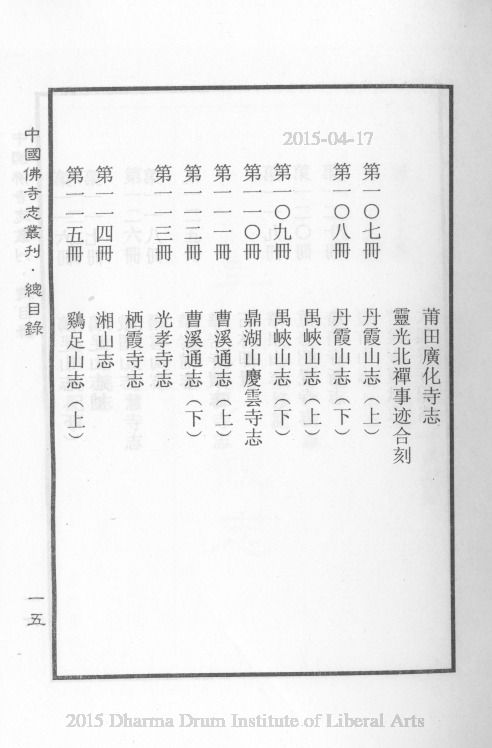 2015-04-17
莆田廣化寺志
靈光北禪事迹合刻
第一〇七冊 丹霞山志（上）
第一〇八冊 丹霞山志（下）
禺峽山志（上）
第一〇九冊 禺峽山志（下）
第一一〇冊 鼎湖山慶雲寺志
第一一一冊 曹溪通志（上）
第一一二冊 曹溪通志（下）
第一一三冊 光孝寺志
栖霞寺志
第一一四冊 湘山志
第一一五冊 鷄足山志（上）
中國佛寺志叢刊·總目錄
一五
2015 Dharma Drum Institute of Liberal Arts